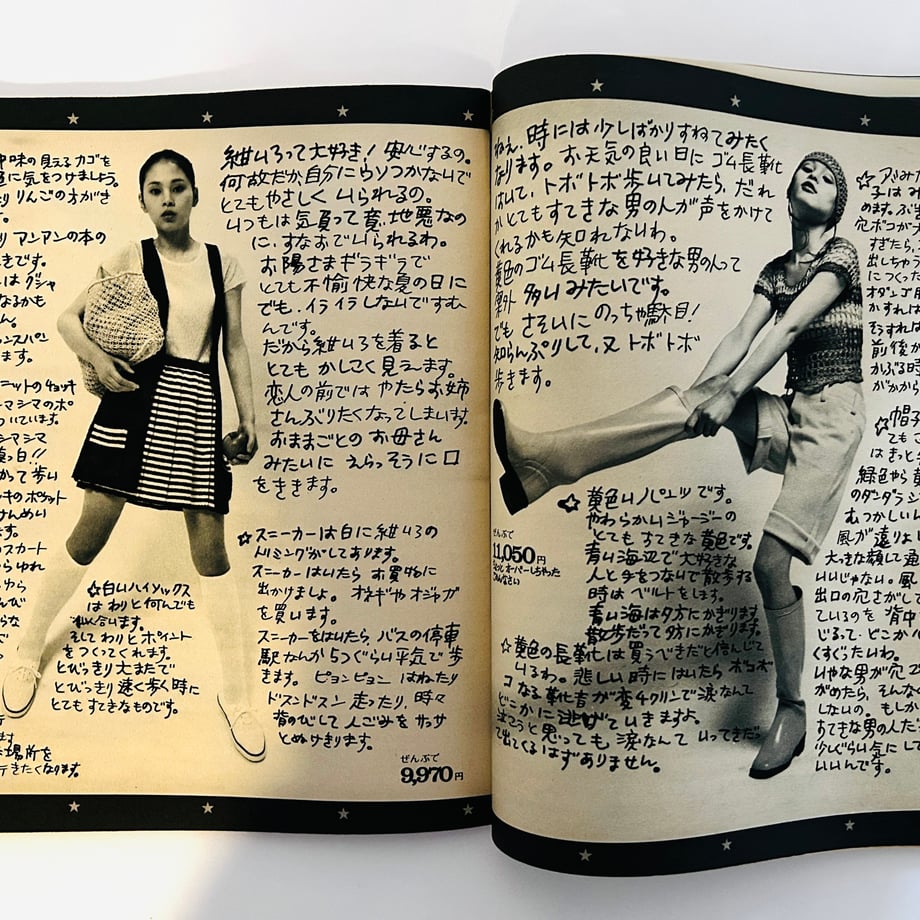 中味の見えるカゴを
に気をつけましょう。
りんごの方がき
す。
り アンアンの本の
きです。
はグシャ
なるかも
ん。
ンスパン
ます。
ニットのチョッキ
マシマのポ
ついています。
シマシマ
真っ白!!
かって歩い
ッキのポケット
けんめい
ます。
のスカート
らゆれ
ゆら
んび
らな
て
す
ます
場所を
行きたくなります。
紺いろって大好き! 安心するの。
何故だか自分にウソつかないで
とてもやさしくいられるの。
いつもは気負って意地悪なの
に、すなおでいられるわ。
お陽さまギラギラで
とても不愉快な夏の日に
でも、イライラしないですむ
んです。
だから紺いろを着ると
とてもかしこく見えます。
恋人の前では やたらお姉
さんぶりたくなってしまいます。
おままごとの お母さん
みたいに えらっそうに口
をききます。
☆白いハイソックス
は わりと何んでも
似合います。
そして わりとポイント
をつくってくれます。
とびっきり大またで
とびっきり速く歩く時に
とてもすてきなものです。
☆スニーカーは白に紺いろの
トリミングがしてあります。
スニーカーはいたら お買物に
出かけましょ。オネギやオジャガ
を買います。
スニーカーをはいたら バスの停車
駅なんか5つぐらい平気で歩
きます。ピョンピョン はねたり
ドスンドスン 走ったり、時々
背のびして 人ごみを サッサ
とぬけきります。
ぜんぶで
9,970円
ねぇ、時には少しばかりすねてみたく
なります。お天気の良い日に ゴム長靴
はいて、トボトボ歩いてみたら、だれ
かとてもすてきな男の人が声をかけて
くれるかも知れないわ。
黄色のゴム長靴を好きな男の人って
案外 多いみたいです。
でも さそいにのっちゃ駄目!
知らんぷりして、又 トボトボ
歩きます。
ぜんぶで
11,050円
ちょっとオーバーしちゃった
ごめんなさい
☆黄色いパンツです。
やわらかいジャージーの
とてもすてきな黄色です。
青い海辺で大好きな
人と手をつないで散歩する
時は ベルトをします。
青い海は夕方にかぎります
散歩だって夕方にかぎります。
☆黄色の長靴は買うべきだと信んじて
いるわ。悲しい時にはいたら ボコボ
コなる靴音が変チクリンで涙なんて
どこかに逃げていきますよ。
泣こうと思っても 涙なんて いってきだっ
て出てくるはずありません。
☆アミみた
子はみ
めます。ぶ
穴ボコがナ
すぎたら、
出しちゃう
につくった
オダンゴ
かすれば
そうすれば
前後が
かぶる時
がかから
☆帽子
てもこ
はきっと
緑色やら
のダンダラシ
むつかしい
風が通りよ
大きな顔して通
いいじゃない。風
出口の穴さがして
ているのを 背中
じるって、どこかく
くすぐったいわ。
いやな男が穴で
がめたら、そんな
しないの。もしか
すてきな男の人だ
少しぐらい気にして
いいんです。